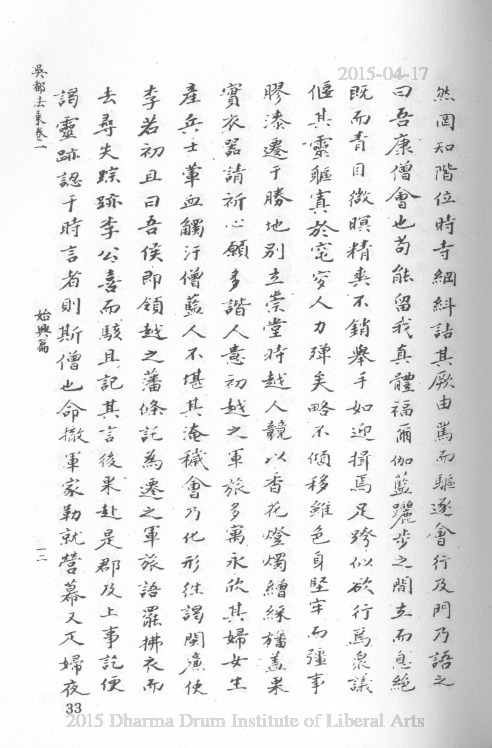 2015-04-17
然罔知階位時寺綱糾詰其厥由罵而驅逐會行及門乃語之
曰吾康僧會也苟能留我真體福爾伽藍躧步之間立而息絕
既而青目微瞑精爽不銷舉手如迎揖焉足跨似欲行焉衆議
偃其靈軀寘於窀穸人力殫矣略不傾移雖色身堅牢而彊事
膠漆遷于勝地別立崇堂時越人競以香花燈燭繒綵旛蓋果
實衣器請祈心願多諧人意初越之軍旅多寓永欣其婦女生
產兵士葷血觸汙僧藍人不堪其淹穢會乃化形往謁閩廉使
李若初且曰吾侯即領越之藩條託為遷之軍旅語罷拂衣而
去尋失踪跡李公喜而駭且記其言後果赴是郡及上事訖便
謁靈跡認于時言者則斯僧也命撤軍家勒就營幕又疋婦夜
吳都法乘卷一
始興篇
一二
33
2015 Dharma Drum Institute of Liberal Arts